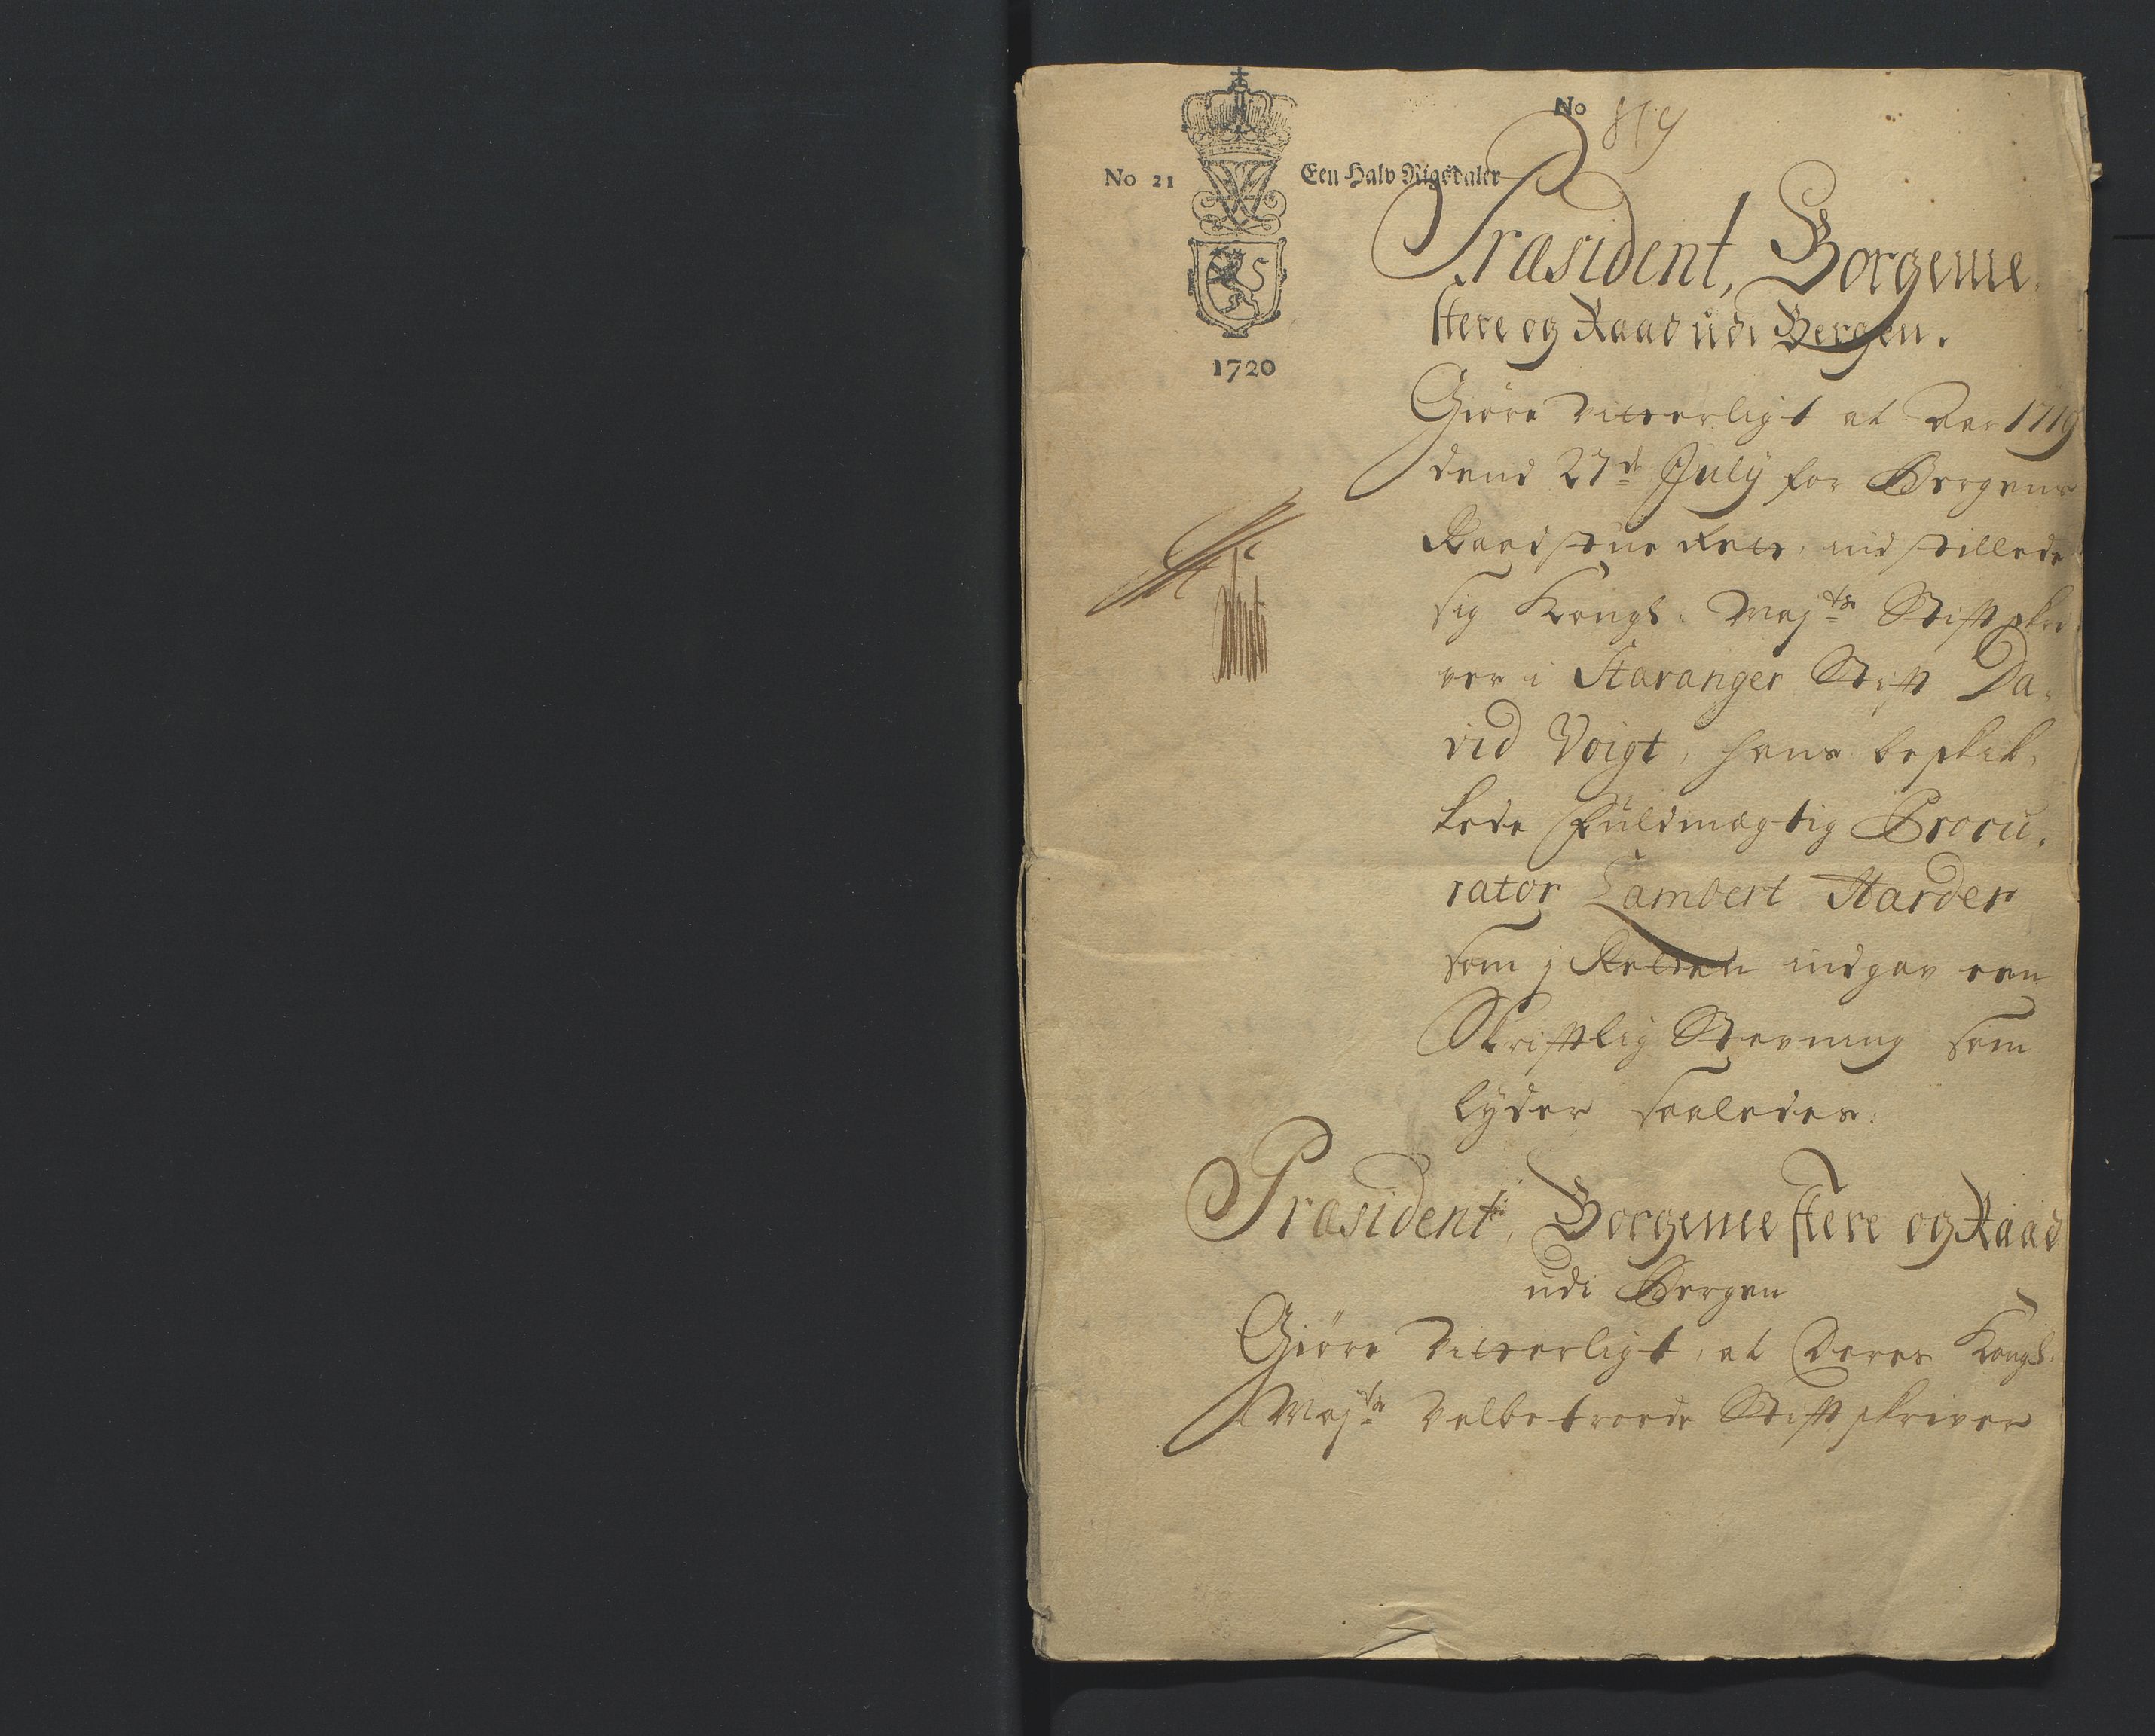 No 819
No 21 Een Halv Rigsdaler
1720
Præsident, Borgeme,
stere og Raad udi Bergen.
Giøre Vitterligt at Aar 1719
dend 27d July for Bergens
Raadstue Rett, indstillede
sig Kongl: Majts Stiftskri
ver i Stavanger Stift Da,
vid Voigt, hans beskik,
kede Fuldmægtig Procu,
rator Lambert Harder
som j Retten indgav een
Skriftlig Stevning som
lyder saaledes:
Præsident, Borgemestere og Raad
udi Bergen
Giøre Vitterligt, at Deres Kongl:
Majts Velbetroede Stiftskriver